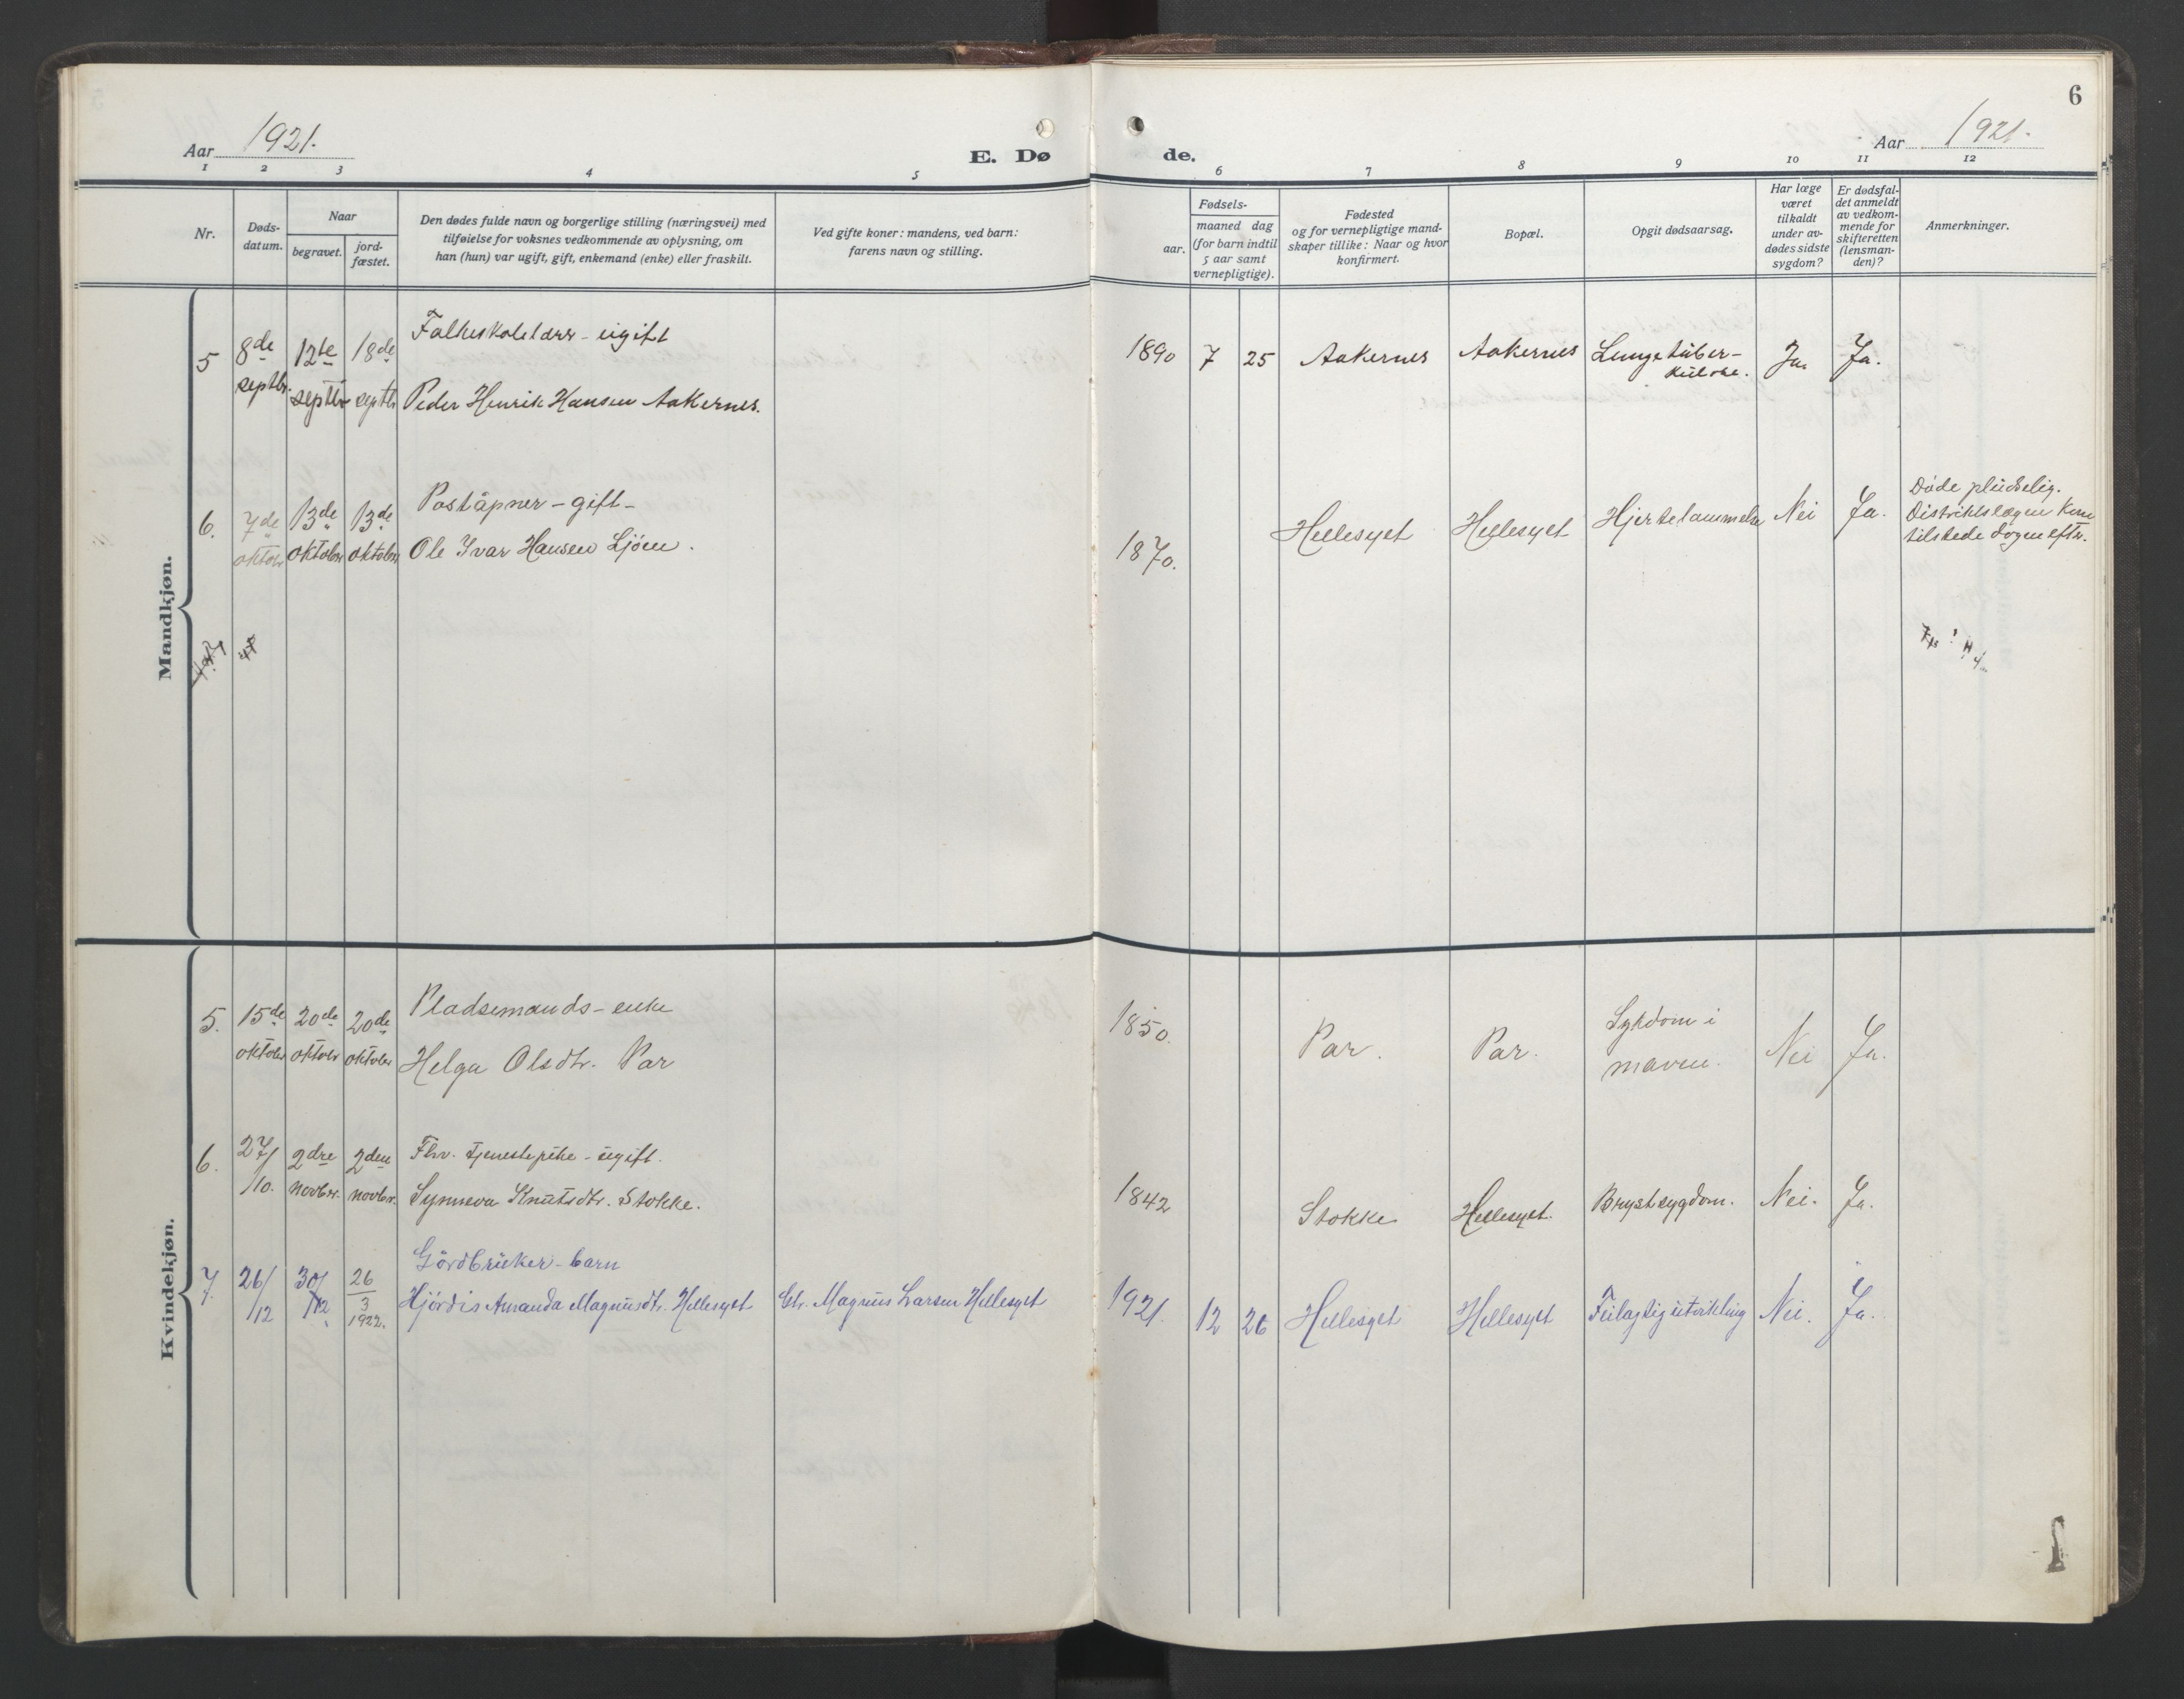 6
Aar 1921.
E. Dø
de.
Aar 1921.
1 2 3 4 5 6 7 8 9 10 11 12
Nr.
Døds-
datum.
Naar
begravet.
jord-
fæstet.
Den dødes fulde navn og borgerlige stilling (næringsvei) med
tilføielse for voksnes vedkommende av oplysning, om
han (hun) var ugift, gift, enkemand (enke) eller fraskilt.
Ved gifte koner: mandens, ved barn:
farens navn og stilling.
Fødsels-
aar.
maaned dag
(for barn indtil
5 aar samt
vernepligtige).
Fødested
og for vernepligtige mand-
skaper tillike: Naar og hvor
konfirmert.
Bopæl.
Opgit dødsaarsag.
Har læge
været
tilkaldt
under av-
dødes sidste
sygdom?
Er dødsfal-
det anmeldt
av vedkom-
mende for
skifteretten
(lensman-
den)?
Anmerkninger.
Mandkjøn.
5
8de
septbr.
12te
septbr
18de
septbr
Folkeskolelærer - ugift
Peder Henrik Hansen Aakernes.
1890 7 25 Aakernes Aakernes
Lungetuber-
kulose.
Ja. Ja.
6.
7de
oktobr
13de
oktober
13de
oktober
Poståpner - gift -
Ole Ivar Hansen Ljöen.
1870.
Hellesyet Hellesyet Hjertelammelse Nei Ja.
Döde pludselig.
Distriktslægen kom
tilstede dagen eftr.
Kvindekjøn.
5.
15de
oktober
20de
oktobr
20de
oktober
Pladsemands - enke
Helga Olsdtr. Par
1850.
Par. Par.
Sykdom i
maven.
Nei Ja.
6.
27/
/10.
2dre
novbr.
2den
novbr.
Fhv. tjenestepike - ugift.
Synneva Knutsdtr. Stokke.
1842
Stokke Hellesyet. Brystsygdom. Nei. Ja.
7.
26/
/12
30/
/12
26
3
1922.
Gårdbruker - barn
Hjördis Amanda Magnusdtr. Hellesyet
Gbr. Magnus Larsen Hellesyet
1921. 12 26 Hellesyet Hellesyet Feilagtig utvikling Nei. Ja.